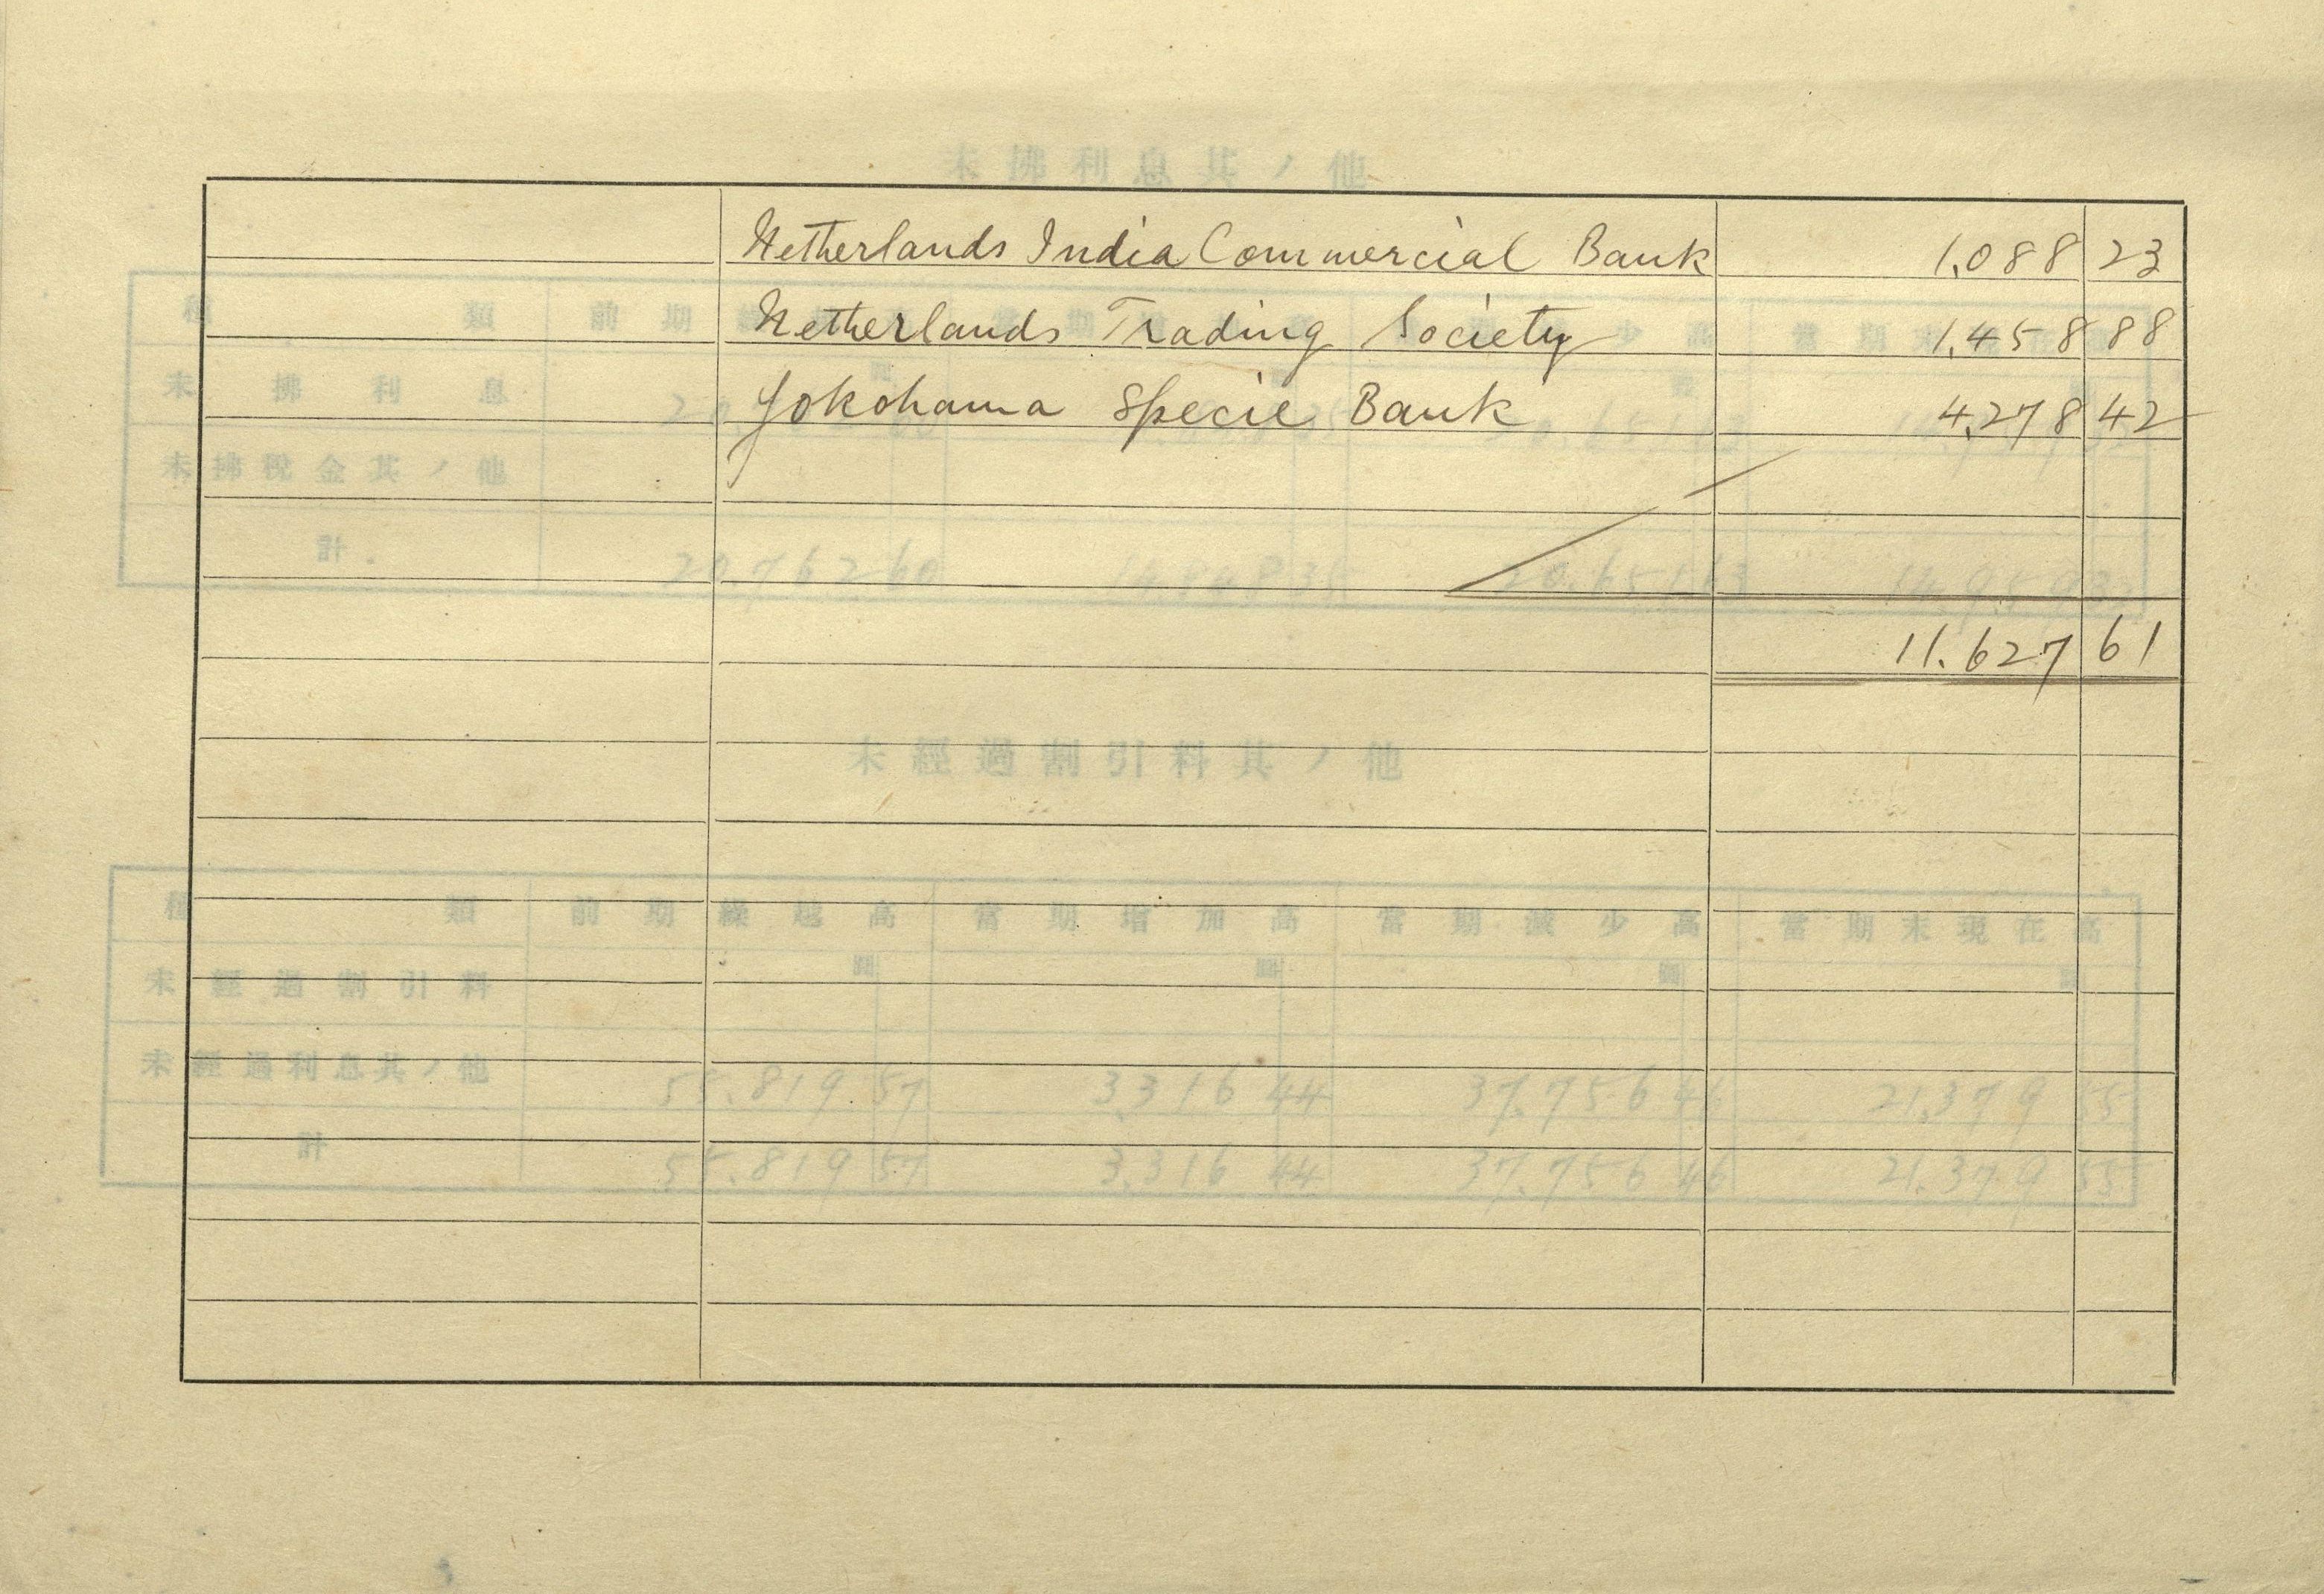 Netherlands India Commercial Bank 1,088 23
Netherlands Trading Society 1,458 88
Yokohama Specie Bank 4,278 42
11.627 61
未拂利息其ノ他
種類 前期 當期
未拂利息
未拂税金其ノ他
計 20.762 60 14.848 20.651 14.959
未經過割引料其ノ他
種類 前期繰越高 當期增加高 當期減少高 當期末現在高
未經過割引料
未經過利息其ノ他 55.819 57 3.316 44 37.756 46 21.379 55
計 55.819 57 3.316 44 37.756 46 21.379 55